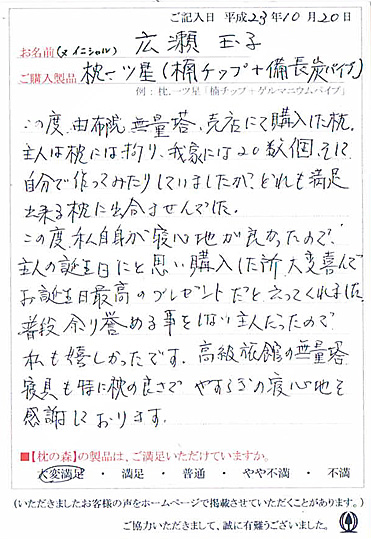 ご記入日 平成23年10月20日
お名前(又イニシャル) 広瀬 玉子
ご購入製品 枕一ツ星(楠チップ+備長炭パイプ)
例:枕.一ツ星「楠チップ+ゲルマニウムパイプ」
この度、由布院 無量塔、売店にて購入した枕、
主人は枕には拘り、我家には20数個、そして
自分で作ってみたりしていましたが、どれも満足
出来る枕に出合ませんでした。
この度、私自身が寝心地が良かったので、
主人の誕生日にと思い購入した所 大変喜んで
お誕生日最高のプレゼントだと云ってくれました。
普段 余り誉める事をしない主人だったので
私も嬉しかったです. 高級旅館の無量塔
寝具も特に枕の良さで やすらぎの寝心地を
感謝しております。
■【枕の森】の製品は、ご満足いただけていますか。
大変満足 ・ 満足 ・ 普通 ・ やや不満 ・ 不満
(いただきましたお客様の声をホームページで掲載させていただくことがあります。)
ご協力いただきまして、誠に有難うございました。